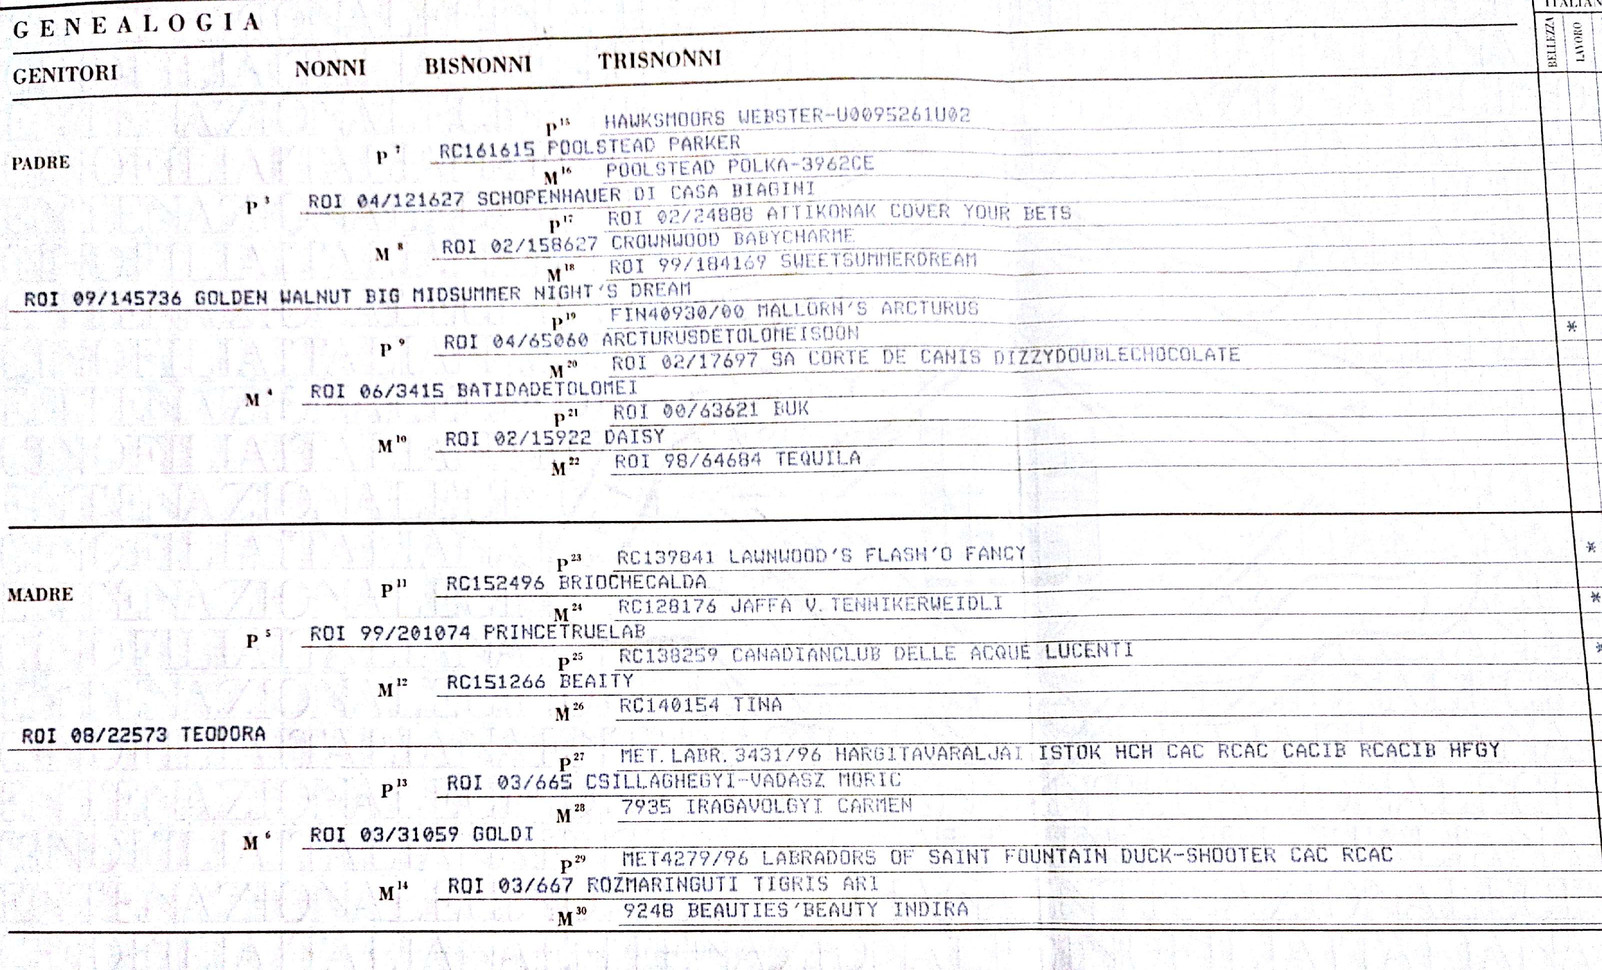 GENEALOGIA
ITALIAN
BELLEZZA
LAVORO
GENITORI NONNI BISNONNI TRISNONNI
P15 HAWKSMOORS WEBSTER-U0095261U02
PADRE
P7 RC161615 POOLSTEAD PARKER
M16 POOLSTEAD POLKA-3962CE
P3 ROI 04/121627 SCHOPENHAUER DI CASA BIAGINI
P17 ROI 02/24888 ATTIKONAK COVER YOUR BETS
M8 ROI 02/158627 CROWNWOOD BABYCHARME
M18 ROI 99/184169 SWEETSUMMERDREAM
ROI 09/145736 GOLDEN WALNUT BIG MIDSUMMER NIGHT'S DREAM
P19 FIN40930/00 MALLORN'S ARCTURUS
P9 ROI 04/65060 ARCTURUSDETOLOMEISOON *
M20 ROI 02/17697 SA CORTE DE CANIS DIZZYDOUBLECHOCOLATE
M4 ROI 06/3415 BATIDADETOLOMEI
P21 ROI 00/63621 BUK
M10 ROI 02/15922 DAISY
M22 ROI 98/64684 TEQUILA
P23 RC139841 LAWNWOOD'S FLASH'O FANCY *
MADRE
P11 RC152496 BRIOCHECALDA
M24 RC128176 JAFFA V.TENNIKERWEIDLI *
P5 ROI 99/201074 PRINCETRUELAB
P25 RC138259 CANADIANCLUB DELLE ACQUE LUCENTI *
M12 RC151266 BEAITY
M26 RC140154 TINA
ROI 08/22573 TEODORA
P27 MET.LABR.3431/96 HARGITAVARALJAI ISTOK HCH CAC RCAC CACIB RCACIB HFGY
P13 ROI 03/665 CSILLAGHEGYI-VADASZ MORIC
M28 7935 IRAGAVOLGYI CARMEN
M6 ROI 03/31059 GOLDI
P29 MET4279/96 LABRADORS OF SAINT FOUNTAIN DUCK-SHOOTER CAC RCAC
M14 ROI 03/667 ROZMARINGUTI TIGRIS ARI
M30 9248 BEAUTIES'BEAUTY INDIRA